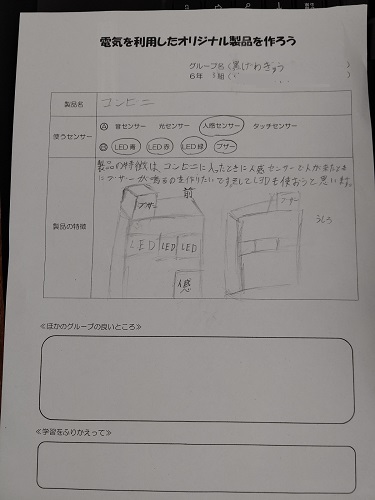 電気を利用したオリジナル製品を作ろう
グループ名(黒げわきゅう)
6年 1組(
製品名 コンビニ
使うセンサー Ⓐ 音センサー 光センサー 人感センサー タッチセンサー
Ⓑ LED 青 LED 赤 LED 緑 ブザー
製品の特徴は、コンビニに入ったときに人感センサーで人が来たとき
にブザーが鳴るのを作りたいです。そしてLEDも使おうと思います。
製品の特徴
前
ブザー ブザー
うしろ
LED LED LED
人感
≪ほかのグループの良いところ≫
≪学習をふりかえって≫